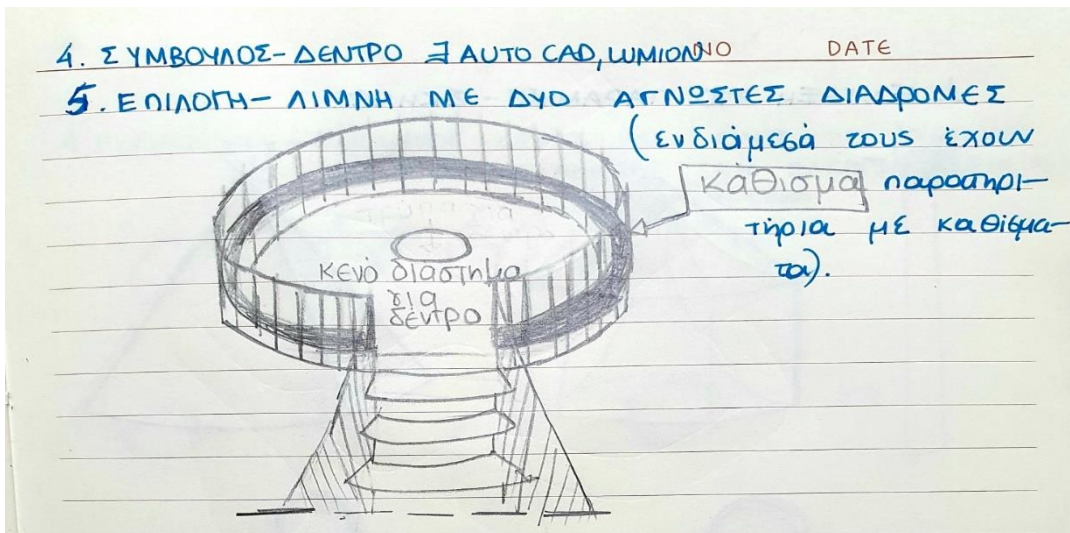 4. ΣΥΜΒΟΥΛΟΣ-ΔΕΝΤΡΟ ∃ AUTO CAD, LUMION NO DATE
5. ΕΠΙΛΟΓΗ- ΛΙΜΝΗ ΜΕ ΔΥΟ ΑΓΝΩΣΤΕΣ ΔΙΑΔΡΟΜΕΣ
(ενδιάμεσά τους έχουν
κάθισμα παρατηρι-
τήρια με καθίσμα-
τα).
κενό διάστημα
για
δέντρο